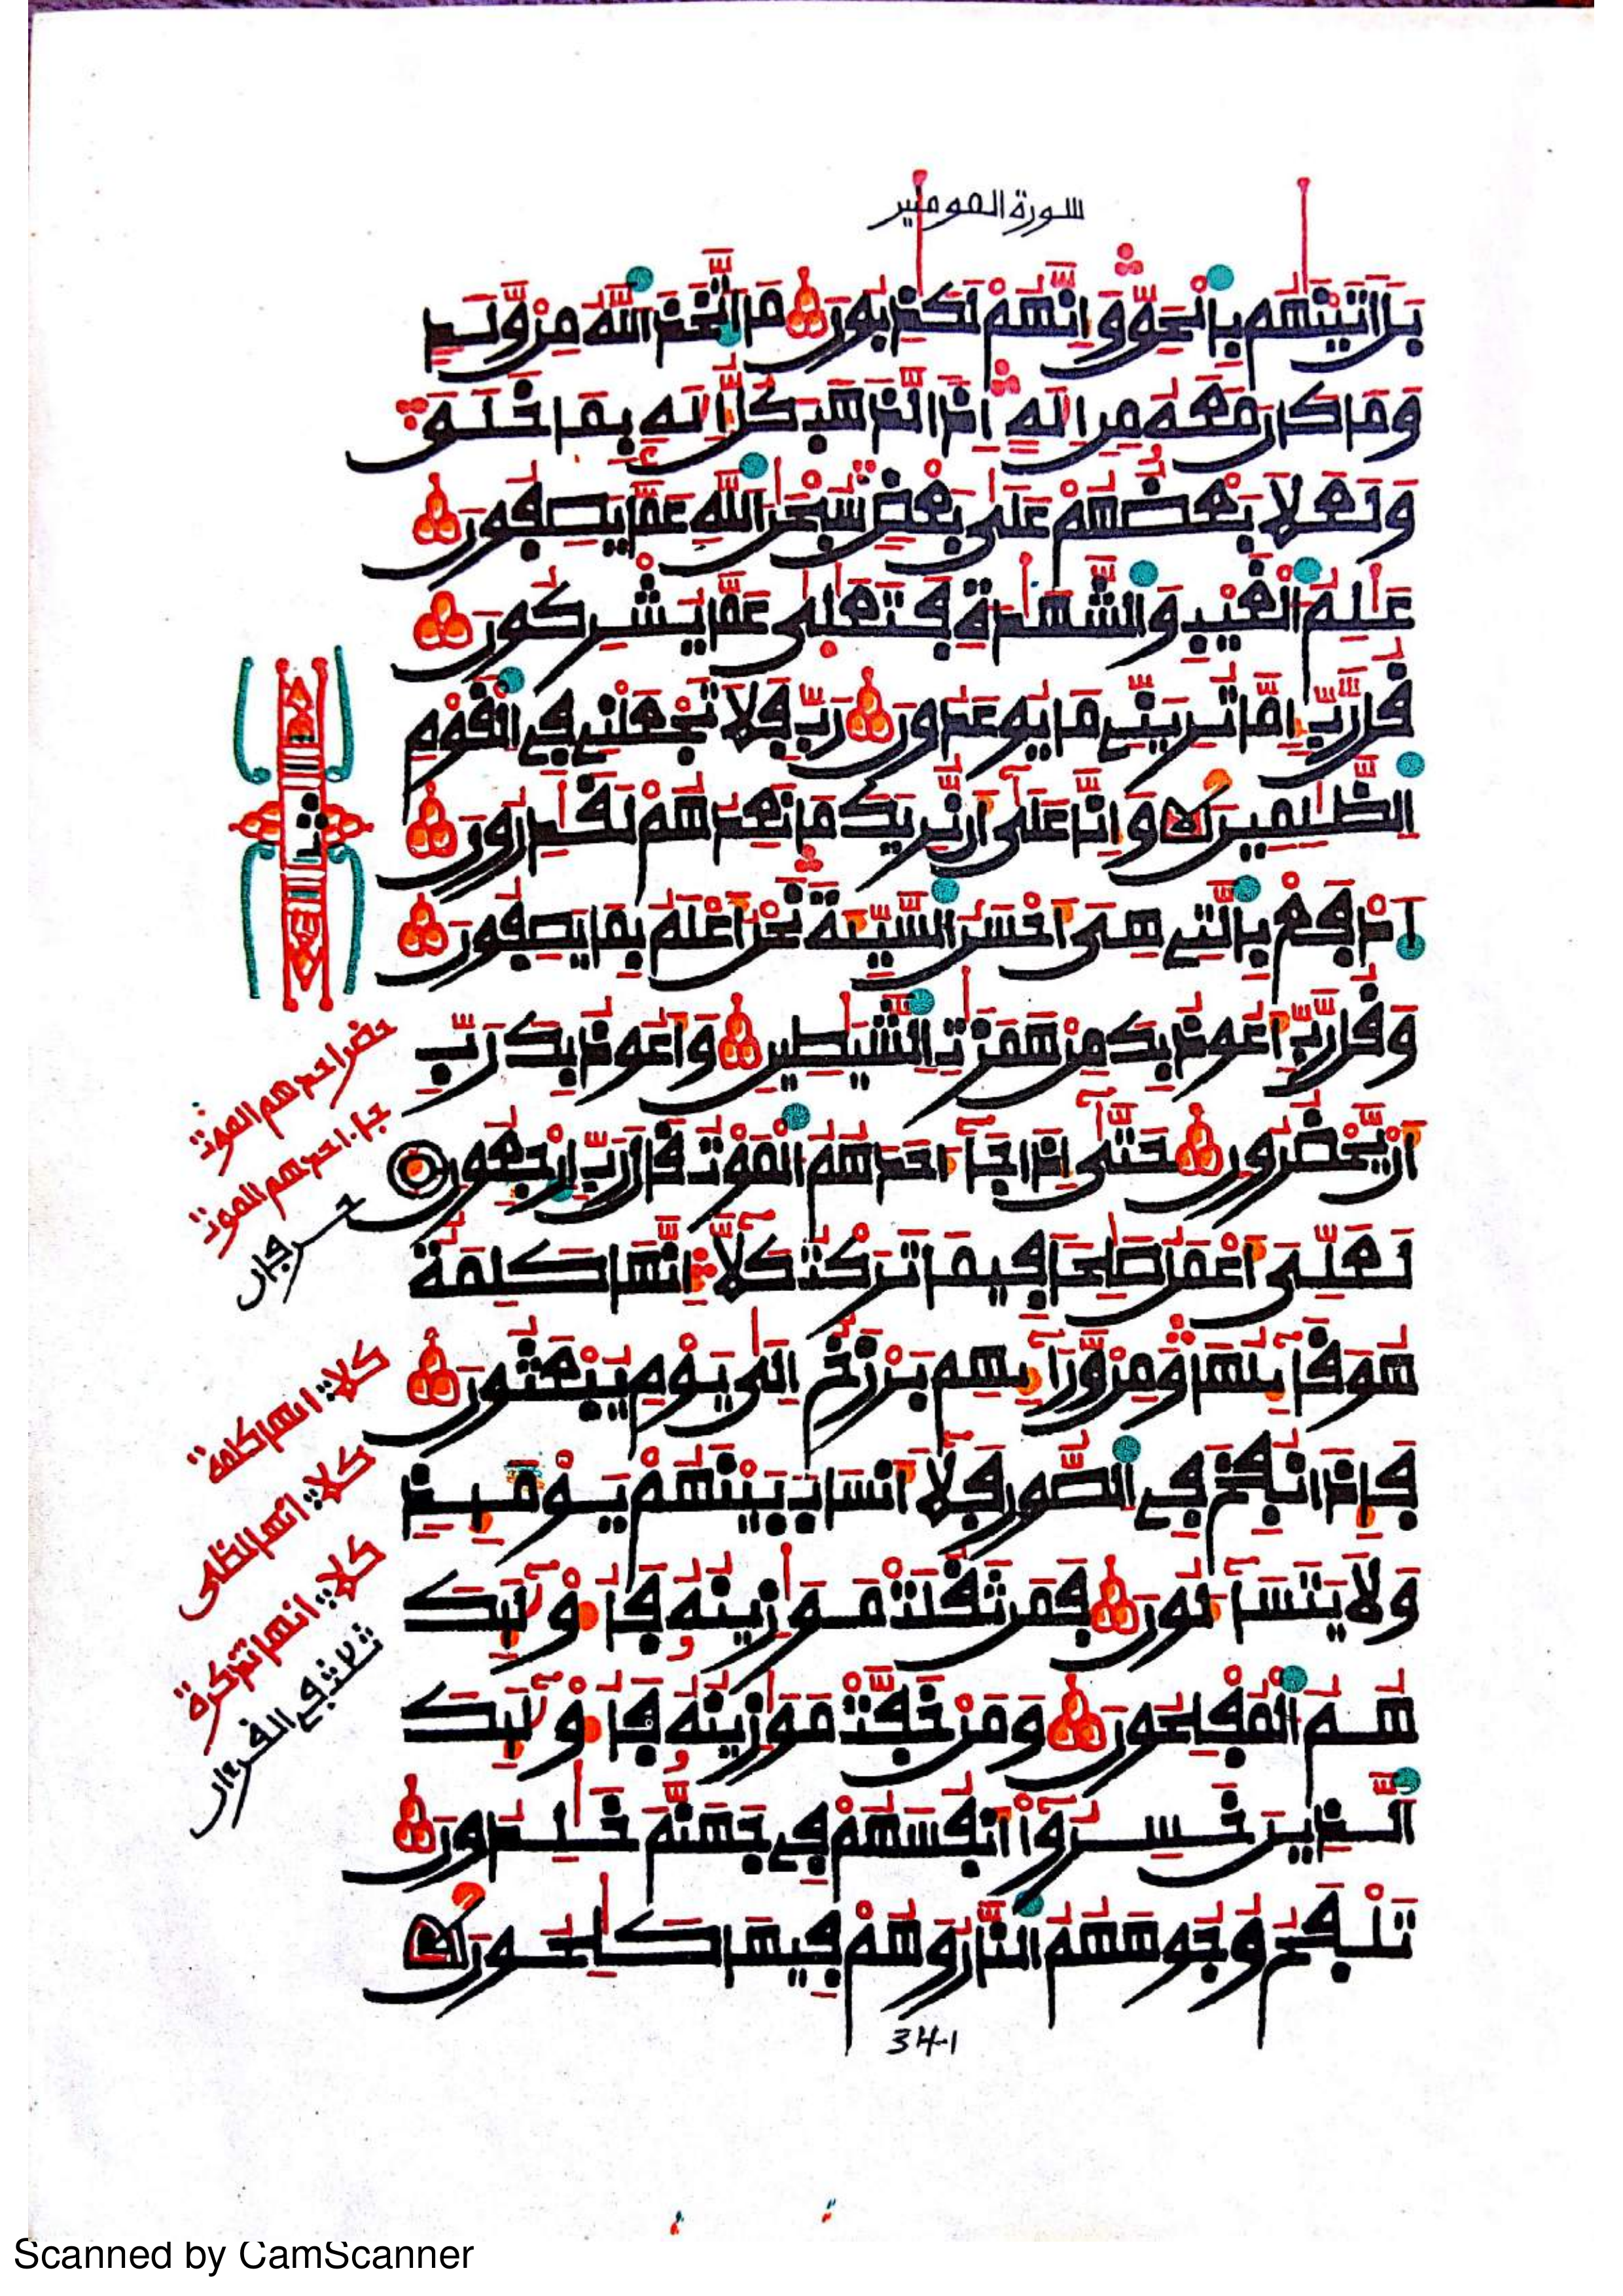 سورة المومنين
بَلَ اتَيْنَٰهُم بِالْحَقِّ وَإِنَّهُمْ لَكَٰذِبُونَ مَا اتَّخَذَ اللَّهُ مِنْ وَّلَدٍ
وَمَا كَانَ مَعَهُ مِنِ الَٰهٍ اِذاً لَّذَهَبَ كُلُّ إِلَٰهٍ بِمَا خَلَقَ
وَلَعَلَا بَعْضُهُمْ عَلَىٰ بَعْضٍ سُبْحَٰنَ اللَّهِ عَمَّا يَصِفُونَ
عَٰلِمُ الْغَيْبِ وَالشَّهَٰدَةِ فَتَعَٰلَىٰ عَمَّا يُشْرِكُونَ
قُل رَّبِّ إِمَّا تُرِيَنِّي مَا يُوعَدُونَ رَبِّ فَلَا تَجْعَلْنِي فِي الْقَوْمِ
الظَّٰلِمِينَ وَإِنَّا عَلَىٰ أَن نُّرِيَكَ مَا نَعِدُهُمْ لَقَٰدِرُونَ
اِدْفَعْ بِالَّتِي هِيَ أَحْسَنُ السَّيِّئَةَ نَحْنُ أَعْلَمُ بِمَا يَصِفُونَ
وَقُل رَّبِّ أَعُوذُ بِكَ مِنْ هَمَزَٰتِ الشَّيَٰطِينِ وَأَعُوذُ بِكَ رَبِّ
أَنْ يَّحْضُرُونِ حَتَّىٰ إِذَا جَآ أَحَدَهُمُ الْمَوْتُ قَالَ رَبِّ ارْجِعُونِ
لَعَلِّيَ أَعْمَلُ صَٰلِحاً فِيمَا تَرَكْتُ كَلَّا إِنَّهَا كَلِمَةٌ
هُوَ قَآئِلُهَا وَمِنْ وَّرَآئِهِم بَرْزَخٌ إِلَىٰ يَوْمِ يُبْعَثُونَ
فَإِذَا نُفِخَ فِي الصُّورِ فَلَا أَنسَابَ بَيْنَهُمْ يَوْمَئِذٍ
وَلَا يَتَسَآءَلُونَ فَمَن ثَقُلَتْ مَوَٰزِينُهُ فَأُوْلَٰٓئِكَ
هُمُ الْمُفْلِحُونَ وَمَنْ خَفَّتْ مَوَٰزِينُهُ فَأُوْلَٰٓئِكَ
الَّذِينَ خَسِرُوٓا أَنفُسَهُمْ فِي جَهَنَّمَ خَٰلِدُونَ
تَلْفَحُ وُجُوهَهُمُ النَّارُ وَهُمْ فِيهَا كَٰلِحُونَ
341
ثمن
حضر احدهم الموت
جا احدهم الموت
حرفان
كلا انها كلمة
كلا انها لظى
كلا انها تذكرة
ثلاث في القرءان
Scanned by CamScanner